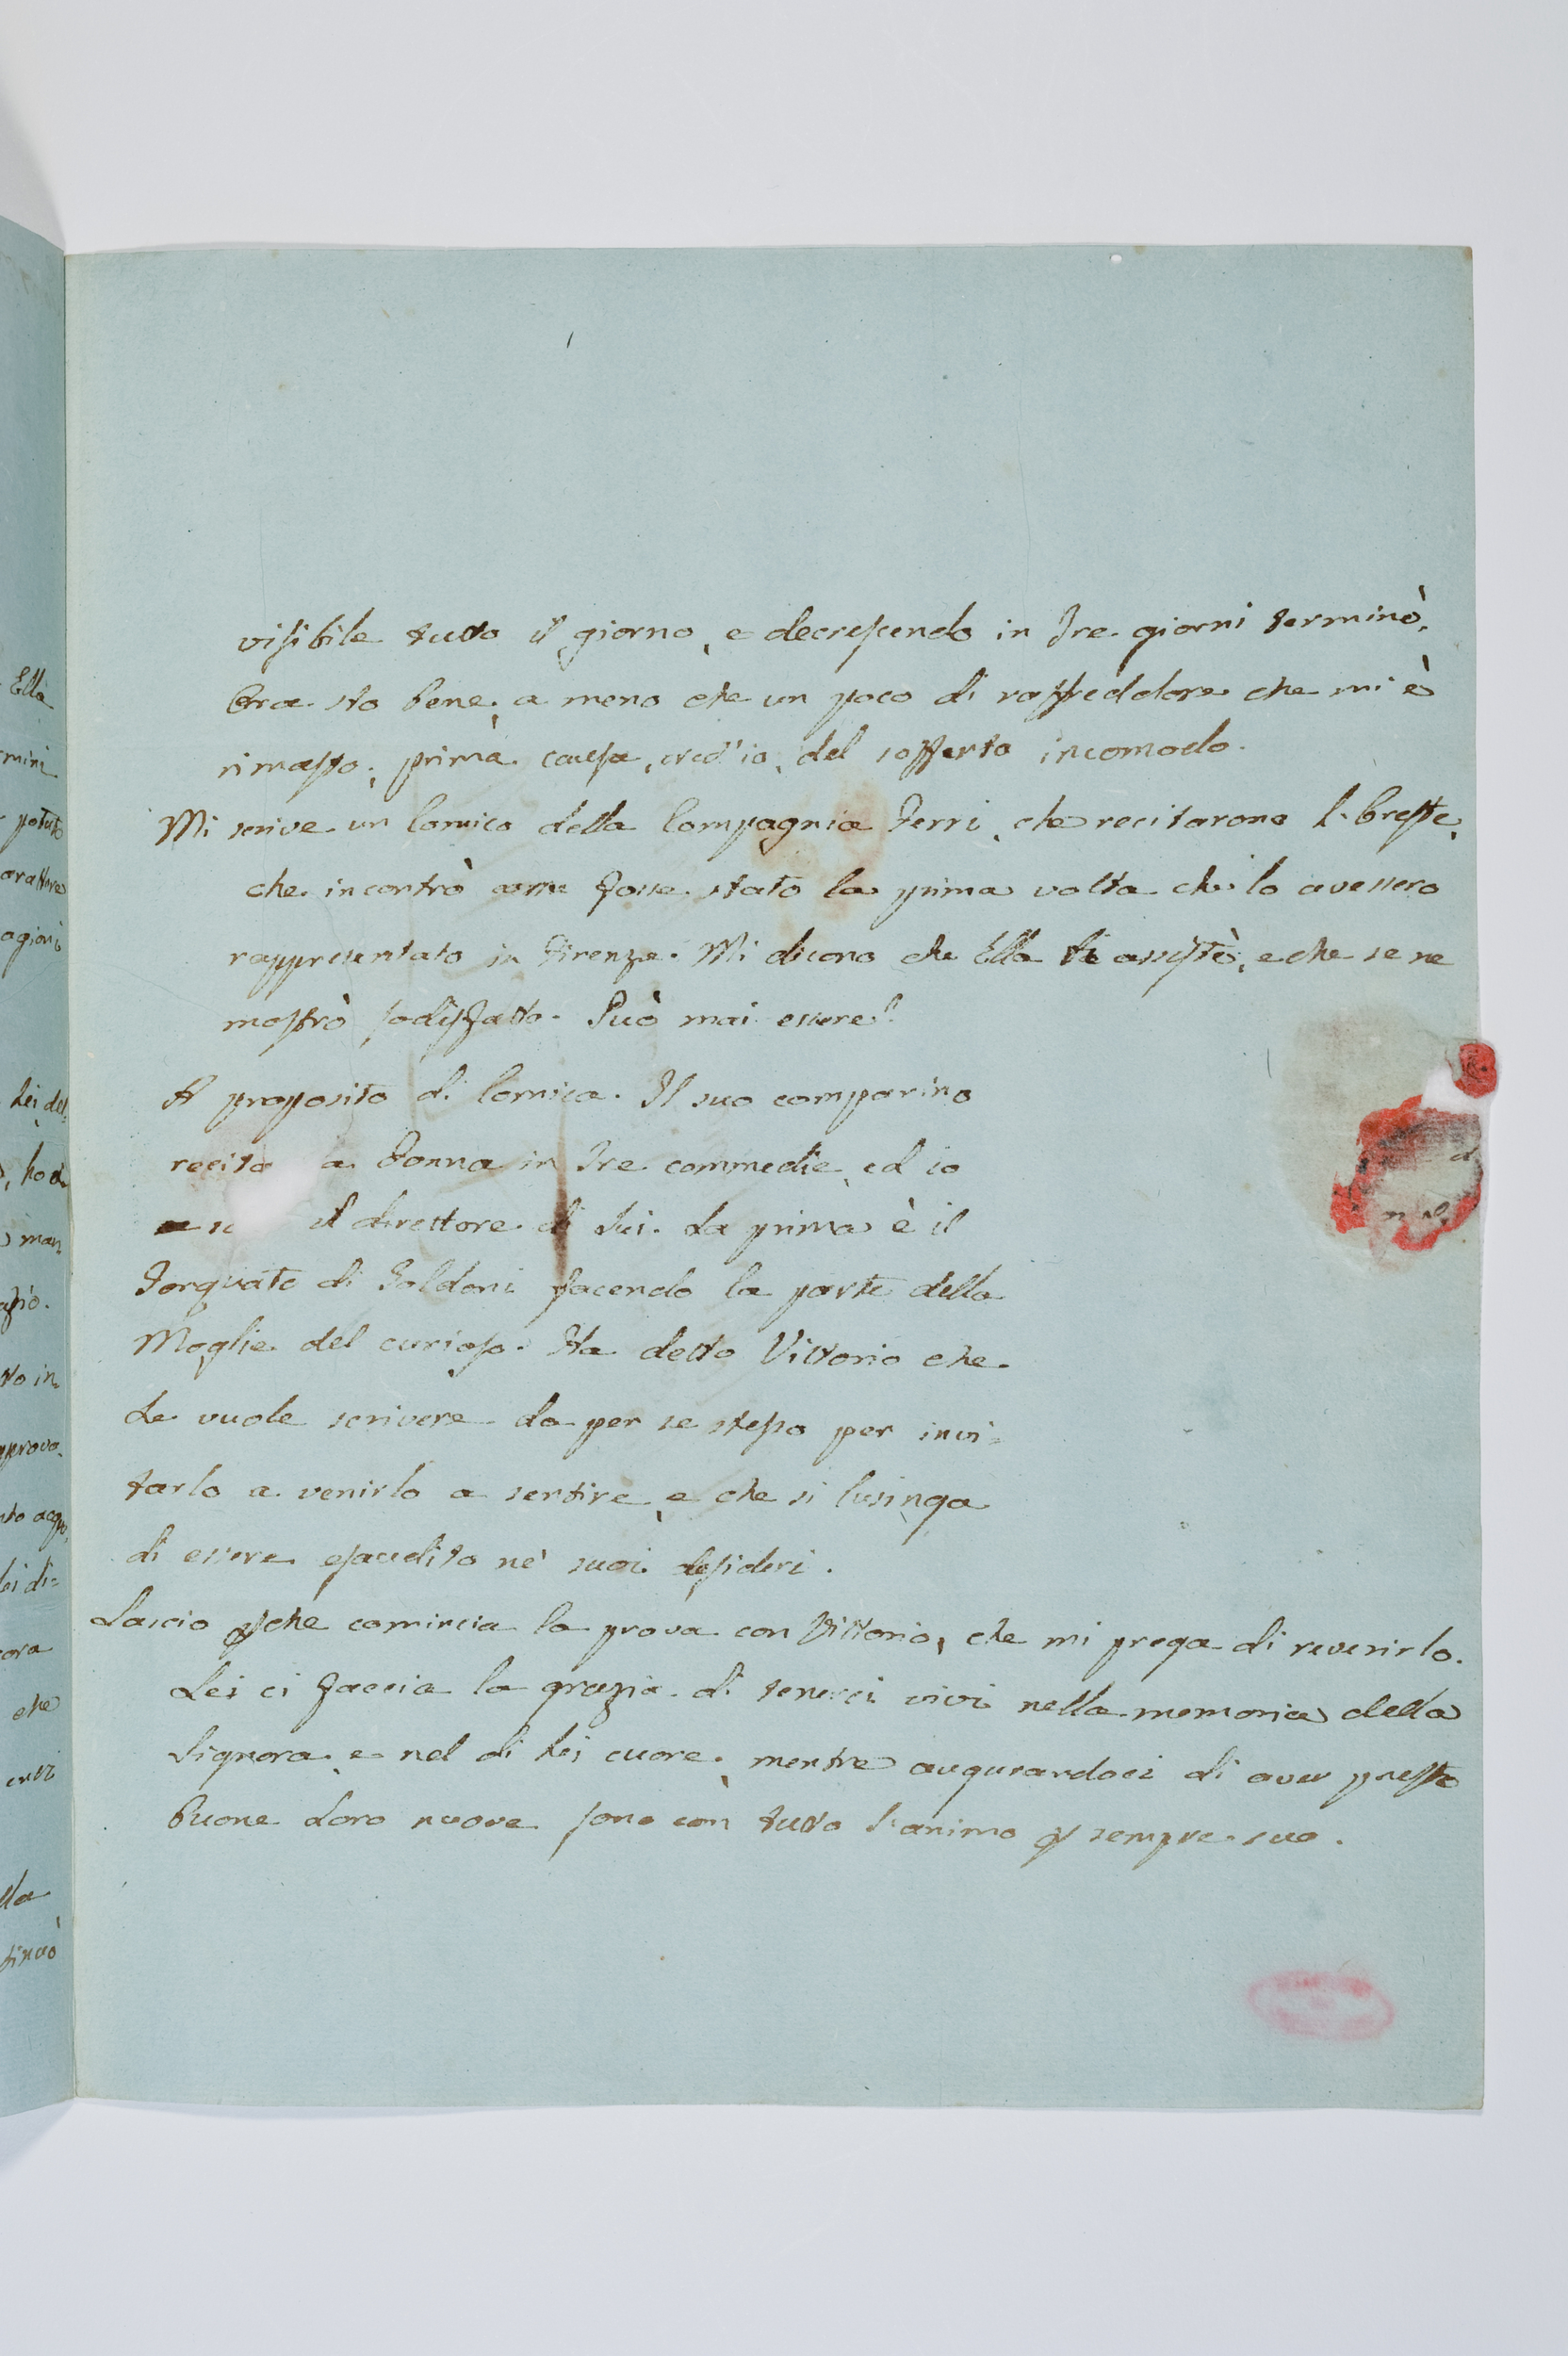 visibile tutto il giorno, e decrescendo in tre giorni terminò.
Ora sto bene, a meno che un poco di raffreddore che mi è
rimasto, prima causa, cred'io, del sofferto incomodo.
Mi scrive un Comico della Compagnia Ferri, che recitarono l'Oreste,
che incontrò come fosse stato la prima volta che lo avessero
rappresentato in Firenze. Mi dicono che Ella vi assistè, e che se ne
mostrò sodisfatto. Può mai essere?
A proposito di Comica. Il suo comparino
recita a Donna in tre commedie, ed io
il direttore di Lui. La prima è il
Torquato di Goldoni facendo la parte della
Moglie del curioso. Ha detto Vittorio che
Le vuole scrivere da per se stesso per invi=
tarlo a venirlo a sentire, e che si lusinga
di essere esaudito ne' suoi desideri.
Lascio che comincia la prova con Vittorio, che mi prega di reverirlo.
Lei ci faccia la grazia di tenerci vivi nella memoria della
Signora, e nel di Lei cuore, mentre augurandoci di aver presto
buone Loro nuove sono con tutto l'animo sempre suo.